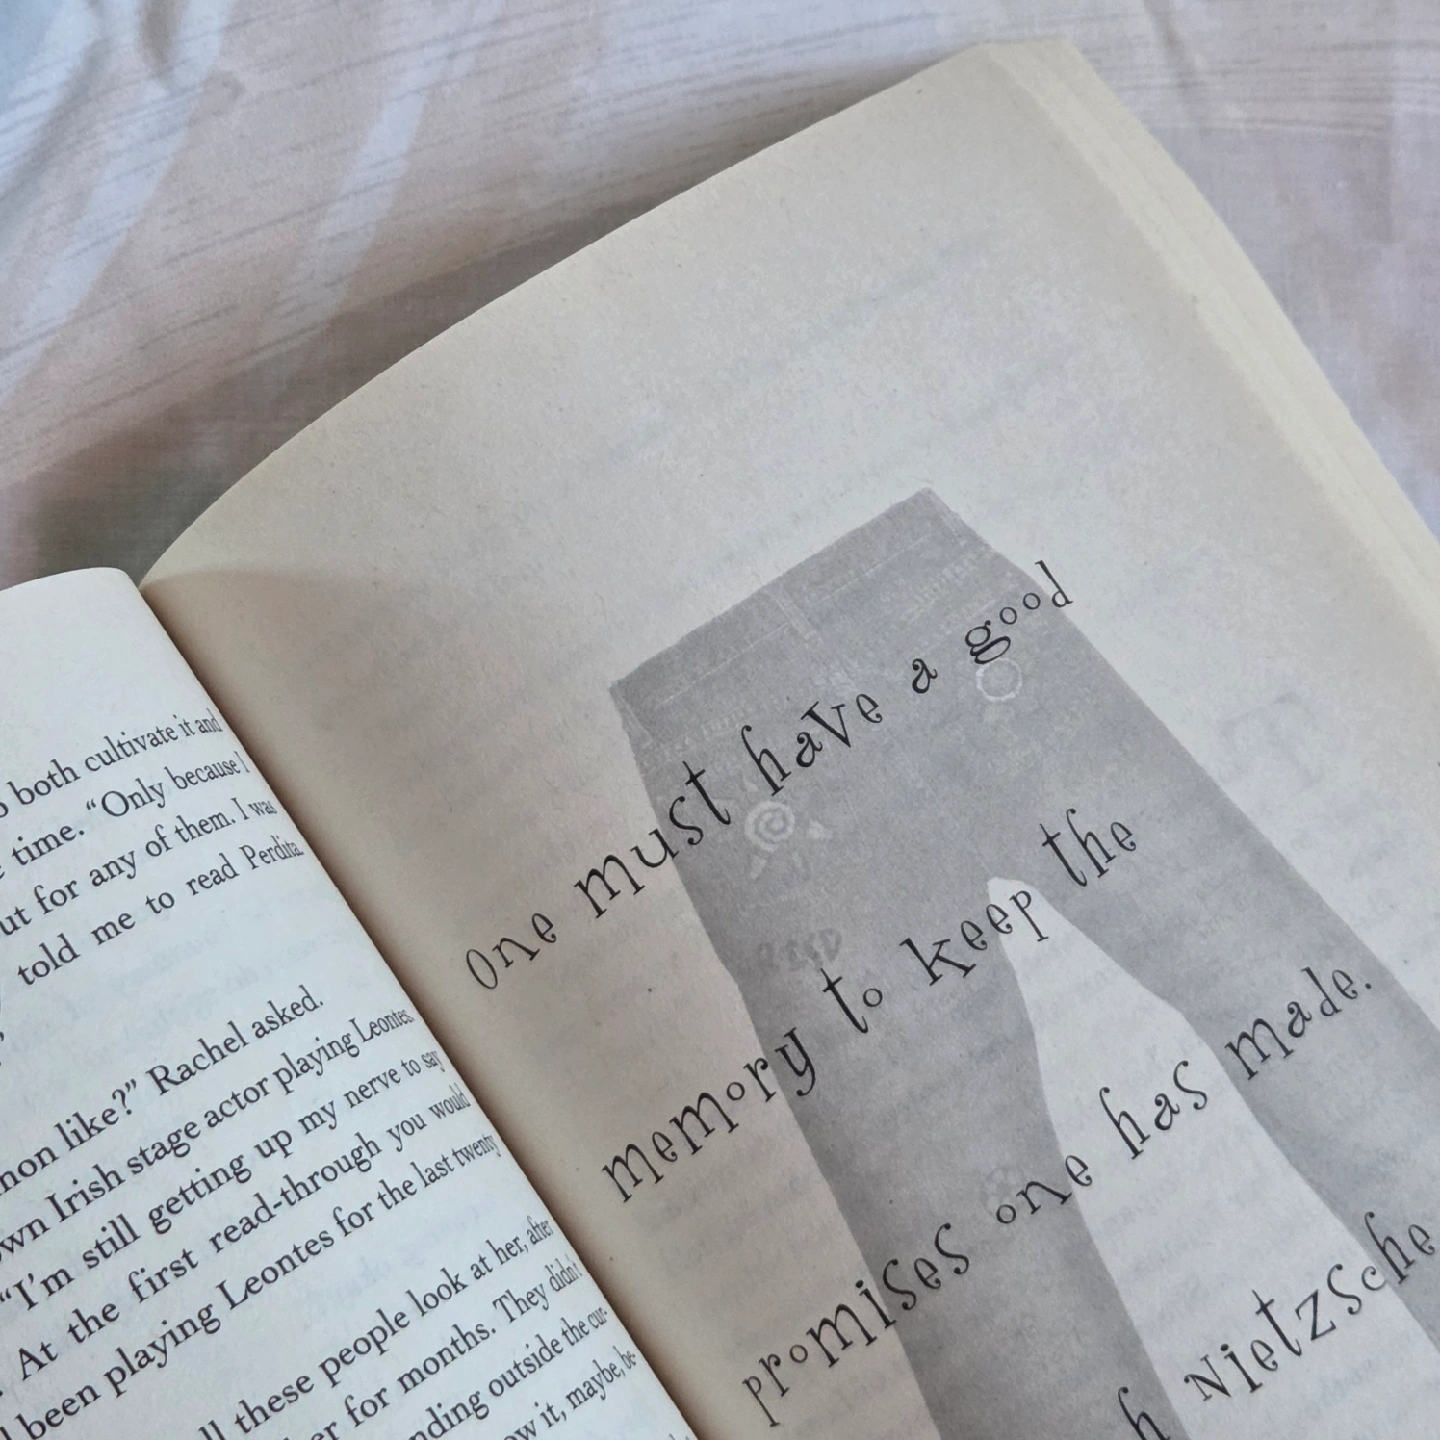 both cultivate it and
time. "Only because I
for any of them. I was
told me to read Perdita.
like?" Rachel asked.
Irish stage actor playing Leontes.
"I'm still getting up my nerve to say
At the first read-through you would
been playing Leontes for the last twenty
these people look at her, after
for months. They didn't
outside the cur-
it, maybe, be-
One must have a good
memory to keep the
promises one has made.
Nietzsche